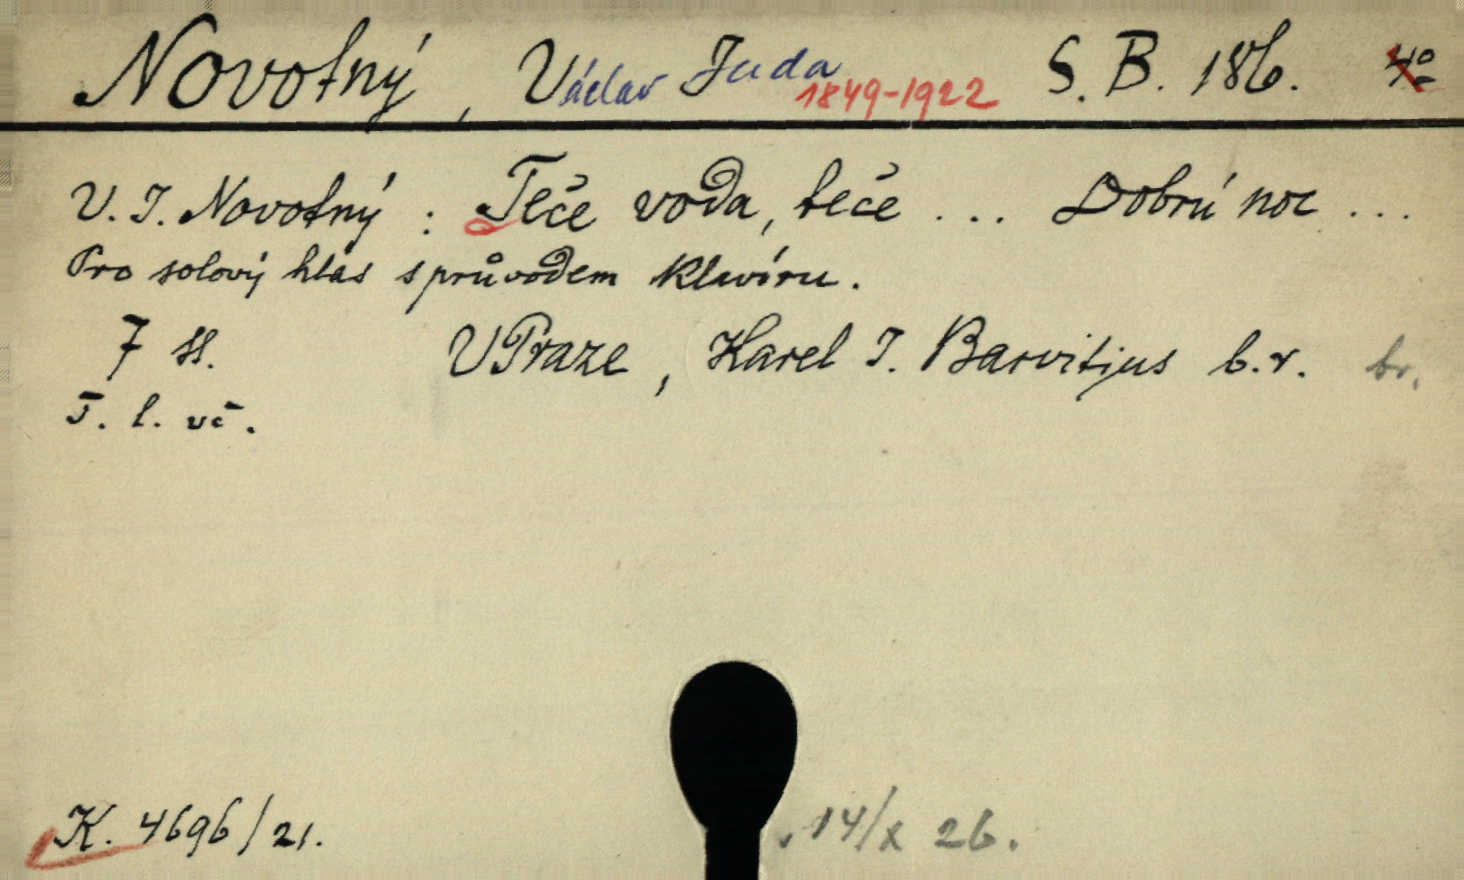 Novotný, Václav Juda 1849-1922 S. B. 186. 4º
V. J. Novotný : Teče voda, teče ... Dobrú noc ...
Pro solový hlas s průvodem klavíru.
7 ss. V Praze, Karel J. Barvitius b. r. br.
T. l. vč.
K. 4696/21. 14/X 26.